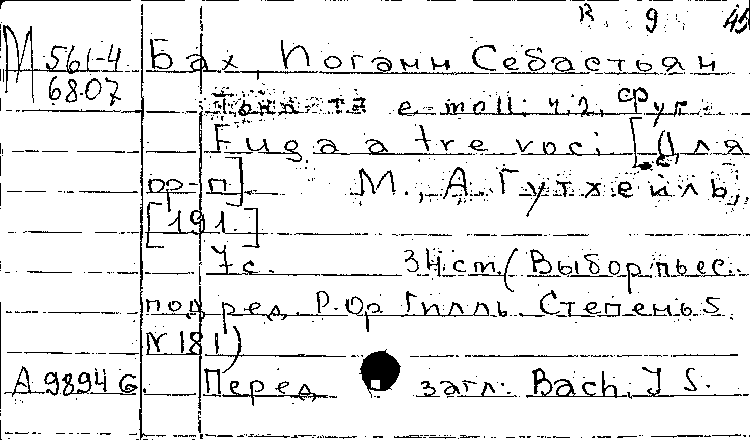 R 9 45
М 561-4 Бах, Иоганн Себастьян
68.07
e-moll. ч. 2, фуг.
Fuga a tre voci [Для
ф-п]. М., А. Гутхейль,
[191. ]
7 с. 34 cm. (Выбор пьес.
под ред. Р. Ор Гилль. Степень 5.
N 181)
А 9894 G. Перед загл. Bach, J S.